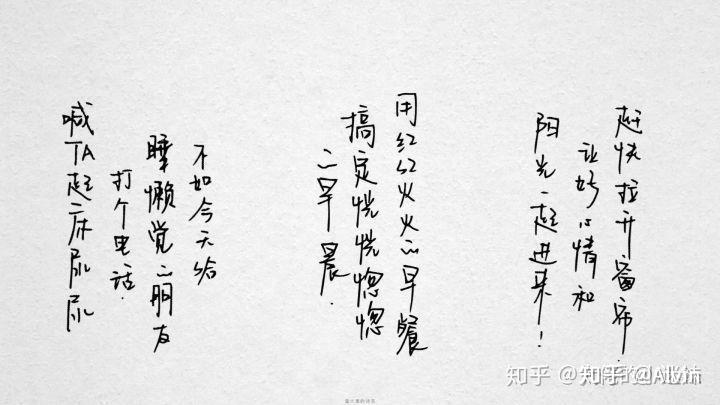 赶快拉开窗帘.
让好心情和
阳光一起进来!
用红红火火的早餐
搞定恍恍惚惚
的早晨.
不如今天给
睡懒觉的朋友
打个电话.
喊TA起床尿尿
知乎